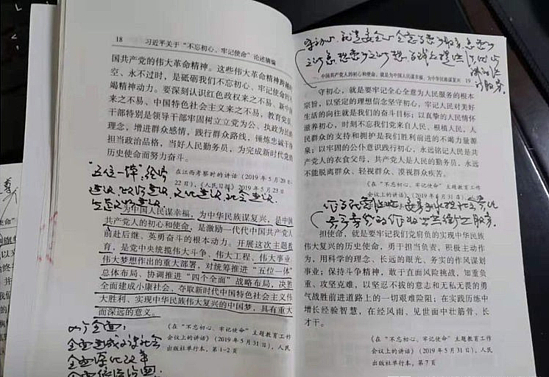 18 习近平关于“不忘初心、牢记使命”论述摘编
国共产党的伟大革命精神。这些伟大革命精神跨越时
空、永不过时，是砥砺我们不忘初心、牢记使命的不
竭精神动力。要深刻认识红色政权来之不易、新中国
来之不易、中国特色社会主义来之不易，教育党员、
干部特别是领导干部牢固树立立党为公、执政为民的
理念，增进群众感情，践行群众路线，锤炼忠诚干净
担当政治品格，当好人民勤务员，为完成新时代党的
历史使命而努力奋斗。
在江西考察时的讲话（2019年5月20日—
22日），《人民日报》2019年5月23日
“五位一体”，经济
建设，政治建设，文化建设，社会建设，
生态文明建设
为中国人民谋幸福，为中华民族谋复兴，是中国
共产党人的初心和使命，是激励一代代中国共产党人
前赴后继、英勇奋斗的根本动力。开展这次主题教育，
是党中央统揽伟大斗争、伟大工程、伟大事业、
伟大梦想作出的重大部署，对统筹推进“五位一体”
总体布局、协调推进“四个全面”战略布局，决胜
全面建成小康社会、夺取新时代中国特色社会主义伟
大胜利、实现中华民族伟大复兴的中国梦，具有重大
而深远的意义。
《在“不忘初心、牢记使命”主题教育工作
会议上的讲话》（2019年5月31日），人民
出版社单行本，第1—2页
四个全面：
全面建成小康社会
全面深化改革
全面依法治国
一、中国共产党人的初心和使命，就是为中国人民谋幸福，为中华民族谋复兴 19
守初心，就是要牢记全心全意为人民服务的根本
宗旨，以坚定的理想信念坚守初心，牢记人民对美好
生活的向往就是我们的奋斗目标；以真挚的人民情怀
滋养初心，时刻不忘我们党来自人民、根植人民，人
民群众的支持和拥护是我们胜利前进的不竭力量源
泉；以牢固的公仆意识践行初心，永远铭记人民是共
产党人的衣食父母，共产党人是人民的勤务员，永远
不能脱离群众、轻视群众、漠视群众疾苦。
担使命，就是要牢记我们党肩负的实现中华民族
伟大复兴的历史使命，勇于担当负责，积极主动作
为，用科学的理念、长远的眼光、务实的作风谋划
事业；保持斗争精神，敢于直面风险挑战，知重负
重、攻坚克难，以坚忍不拔的意志和无私无畏的勇
气战胜前进道路上的一切艰难险阻；在实践历练中
增长经验智慧，在经风雨、见世面中壮筋骨、长
才干。
《在“不忘初心、牢记使命”主题教育工作
会议上的讲话》（2019年5月31日），人民
出版社单行本，第7页